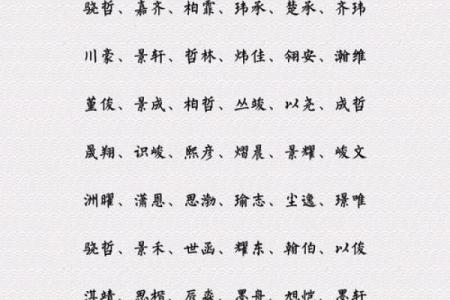 骁哲、嘉齐、柏霏、玮承、楚承、齐玮
川豪、景轩、哲林、炜佳、翎安、瀚维
堇俊、景成、柏哲、丛竣、以尧、成哲
晟翔、识峻、熙彦、熠晨、景耀、峻文
洲曜、潇恩、思渤、瑜志、尘逸、璟唯
骁哲、景禾、世函、耀东、翰伯、以俊
淇靖、思楷、辰淼、墨舟、旭恺、墨轩